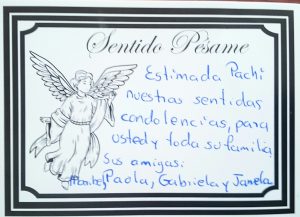 Sentido Pésame
Estimada Pachi
nuestras sentidas
condolencias, para
usted y toda su familia
Sus amigas:
Maribel, Paola, Gabriela y Janela